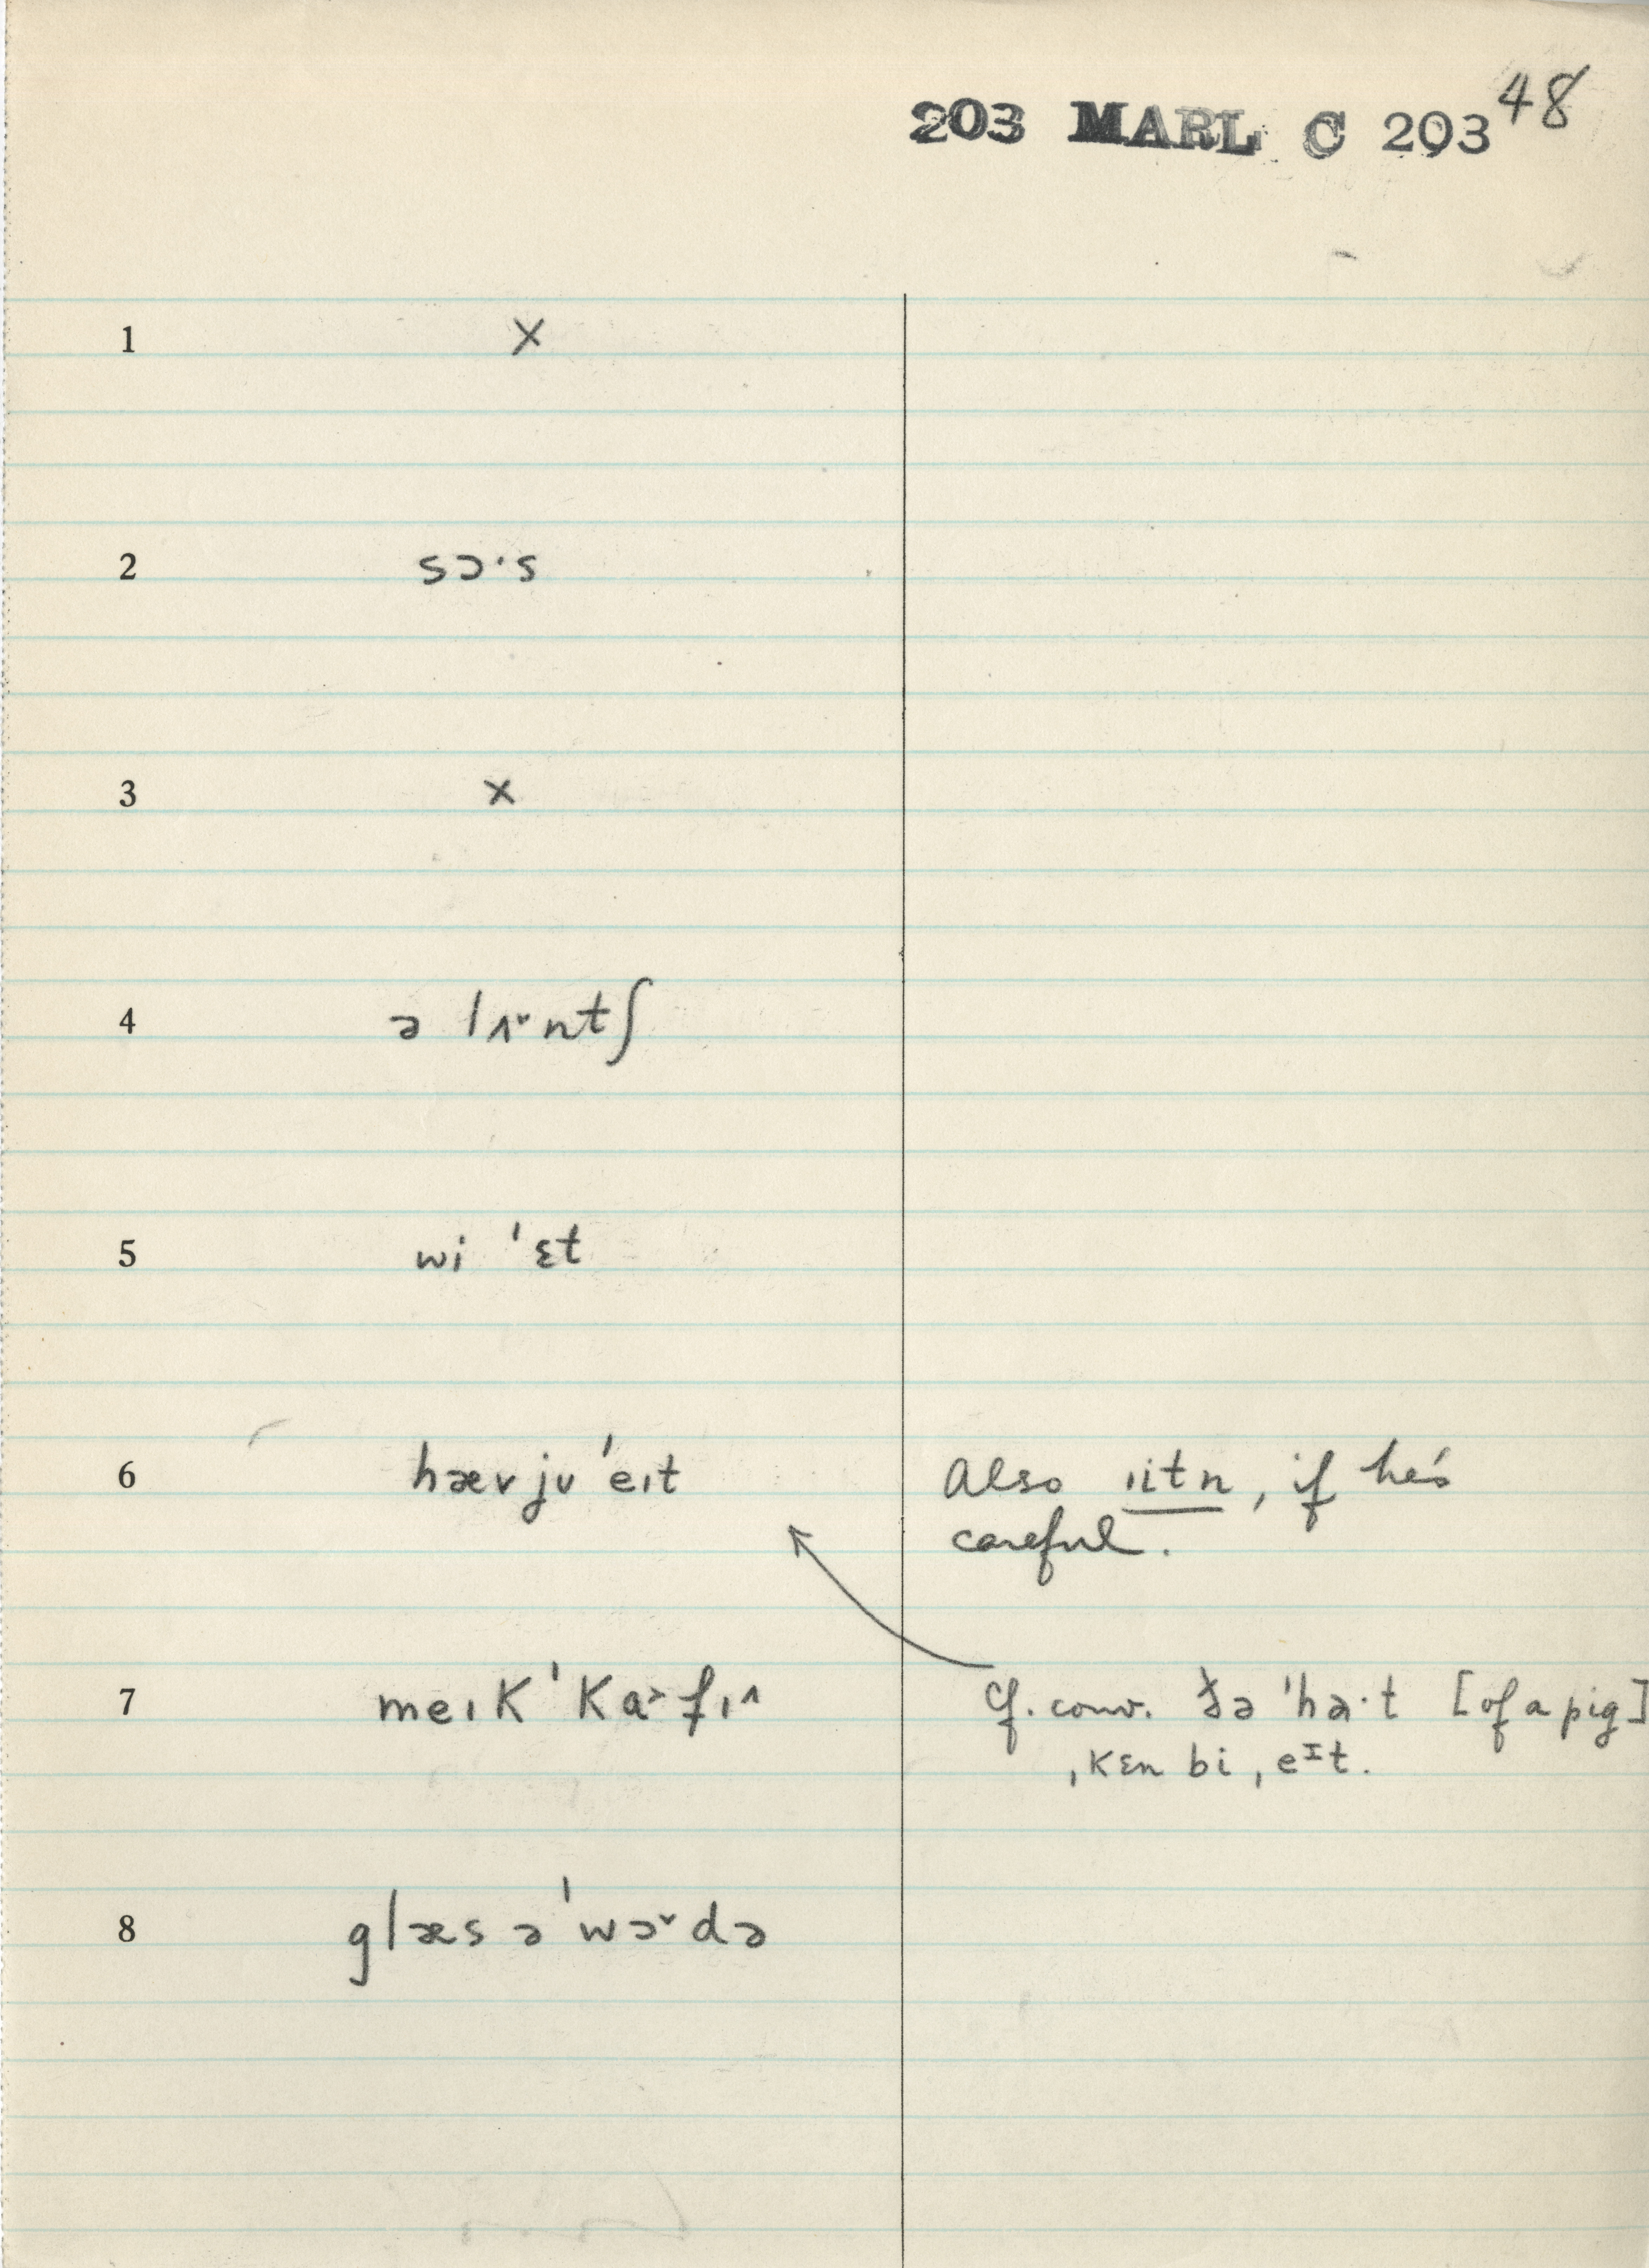 203 MARL C 203 48
1 X
2 sɔ·s
3 X
4 ə lʌ˅ntʃ
5 wi ˈɛt
6 hævjʋ ˈeɪt
Also ɪitn, if he's
careful.
7 meɪk ˈka˃fɪ˄
Cf. conv. ðə ˈhɑ·t [of a pig]
ˌkɛn bi ˌeᴵt.
8 glæs ə ˈwɔ˅də